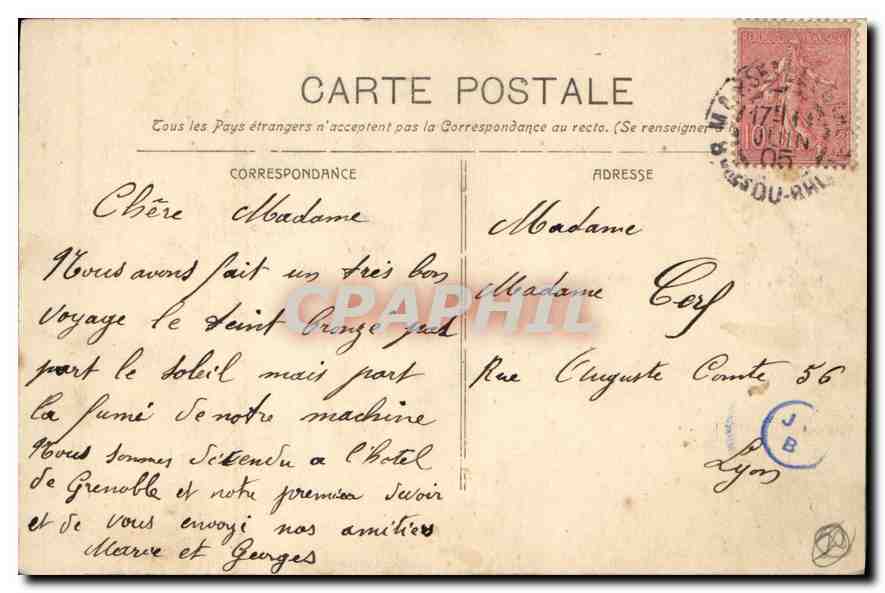 CARTE POSTALE
Tous les Pays étrangers n'acceptent pas la Correspondance au recto. (Se renseigner
CORRESPONDANCE
Chère Madame
Nous avons fait un très bon
voyage le teint bronzé pas
part le soleil mais part
la fumé de notre machine
Nous sommes décendu a l'hotel
de Grenoble et notre premier devoir
et de vous envoyé nos amitiés
Marie et Georges
ADRESSE
Madame
Madame Cerf
Rue Auguste Comte 56
Lyon
17
JUIN
05
DU-RH
J.
B
CPAPHIL